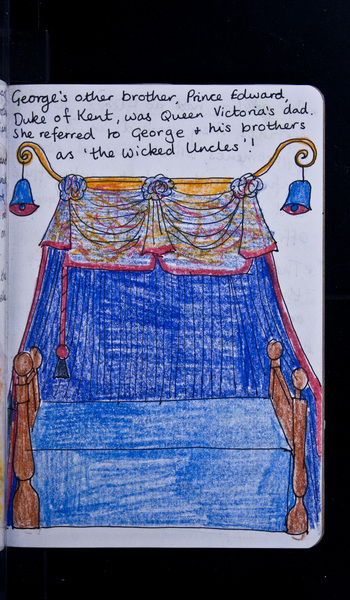 George's other brother, Prince Edward,
Duke of Kent, was Queen Victoria's dad.
She referred to George + his brothers
as 'the Wicked Uncles'!